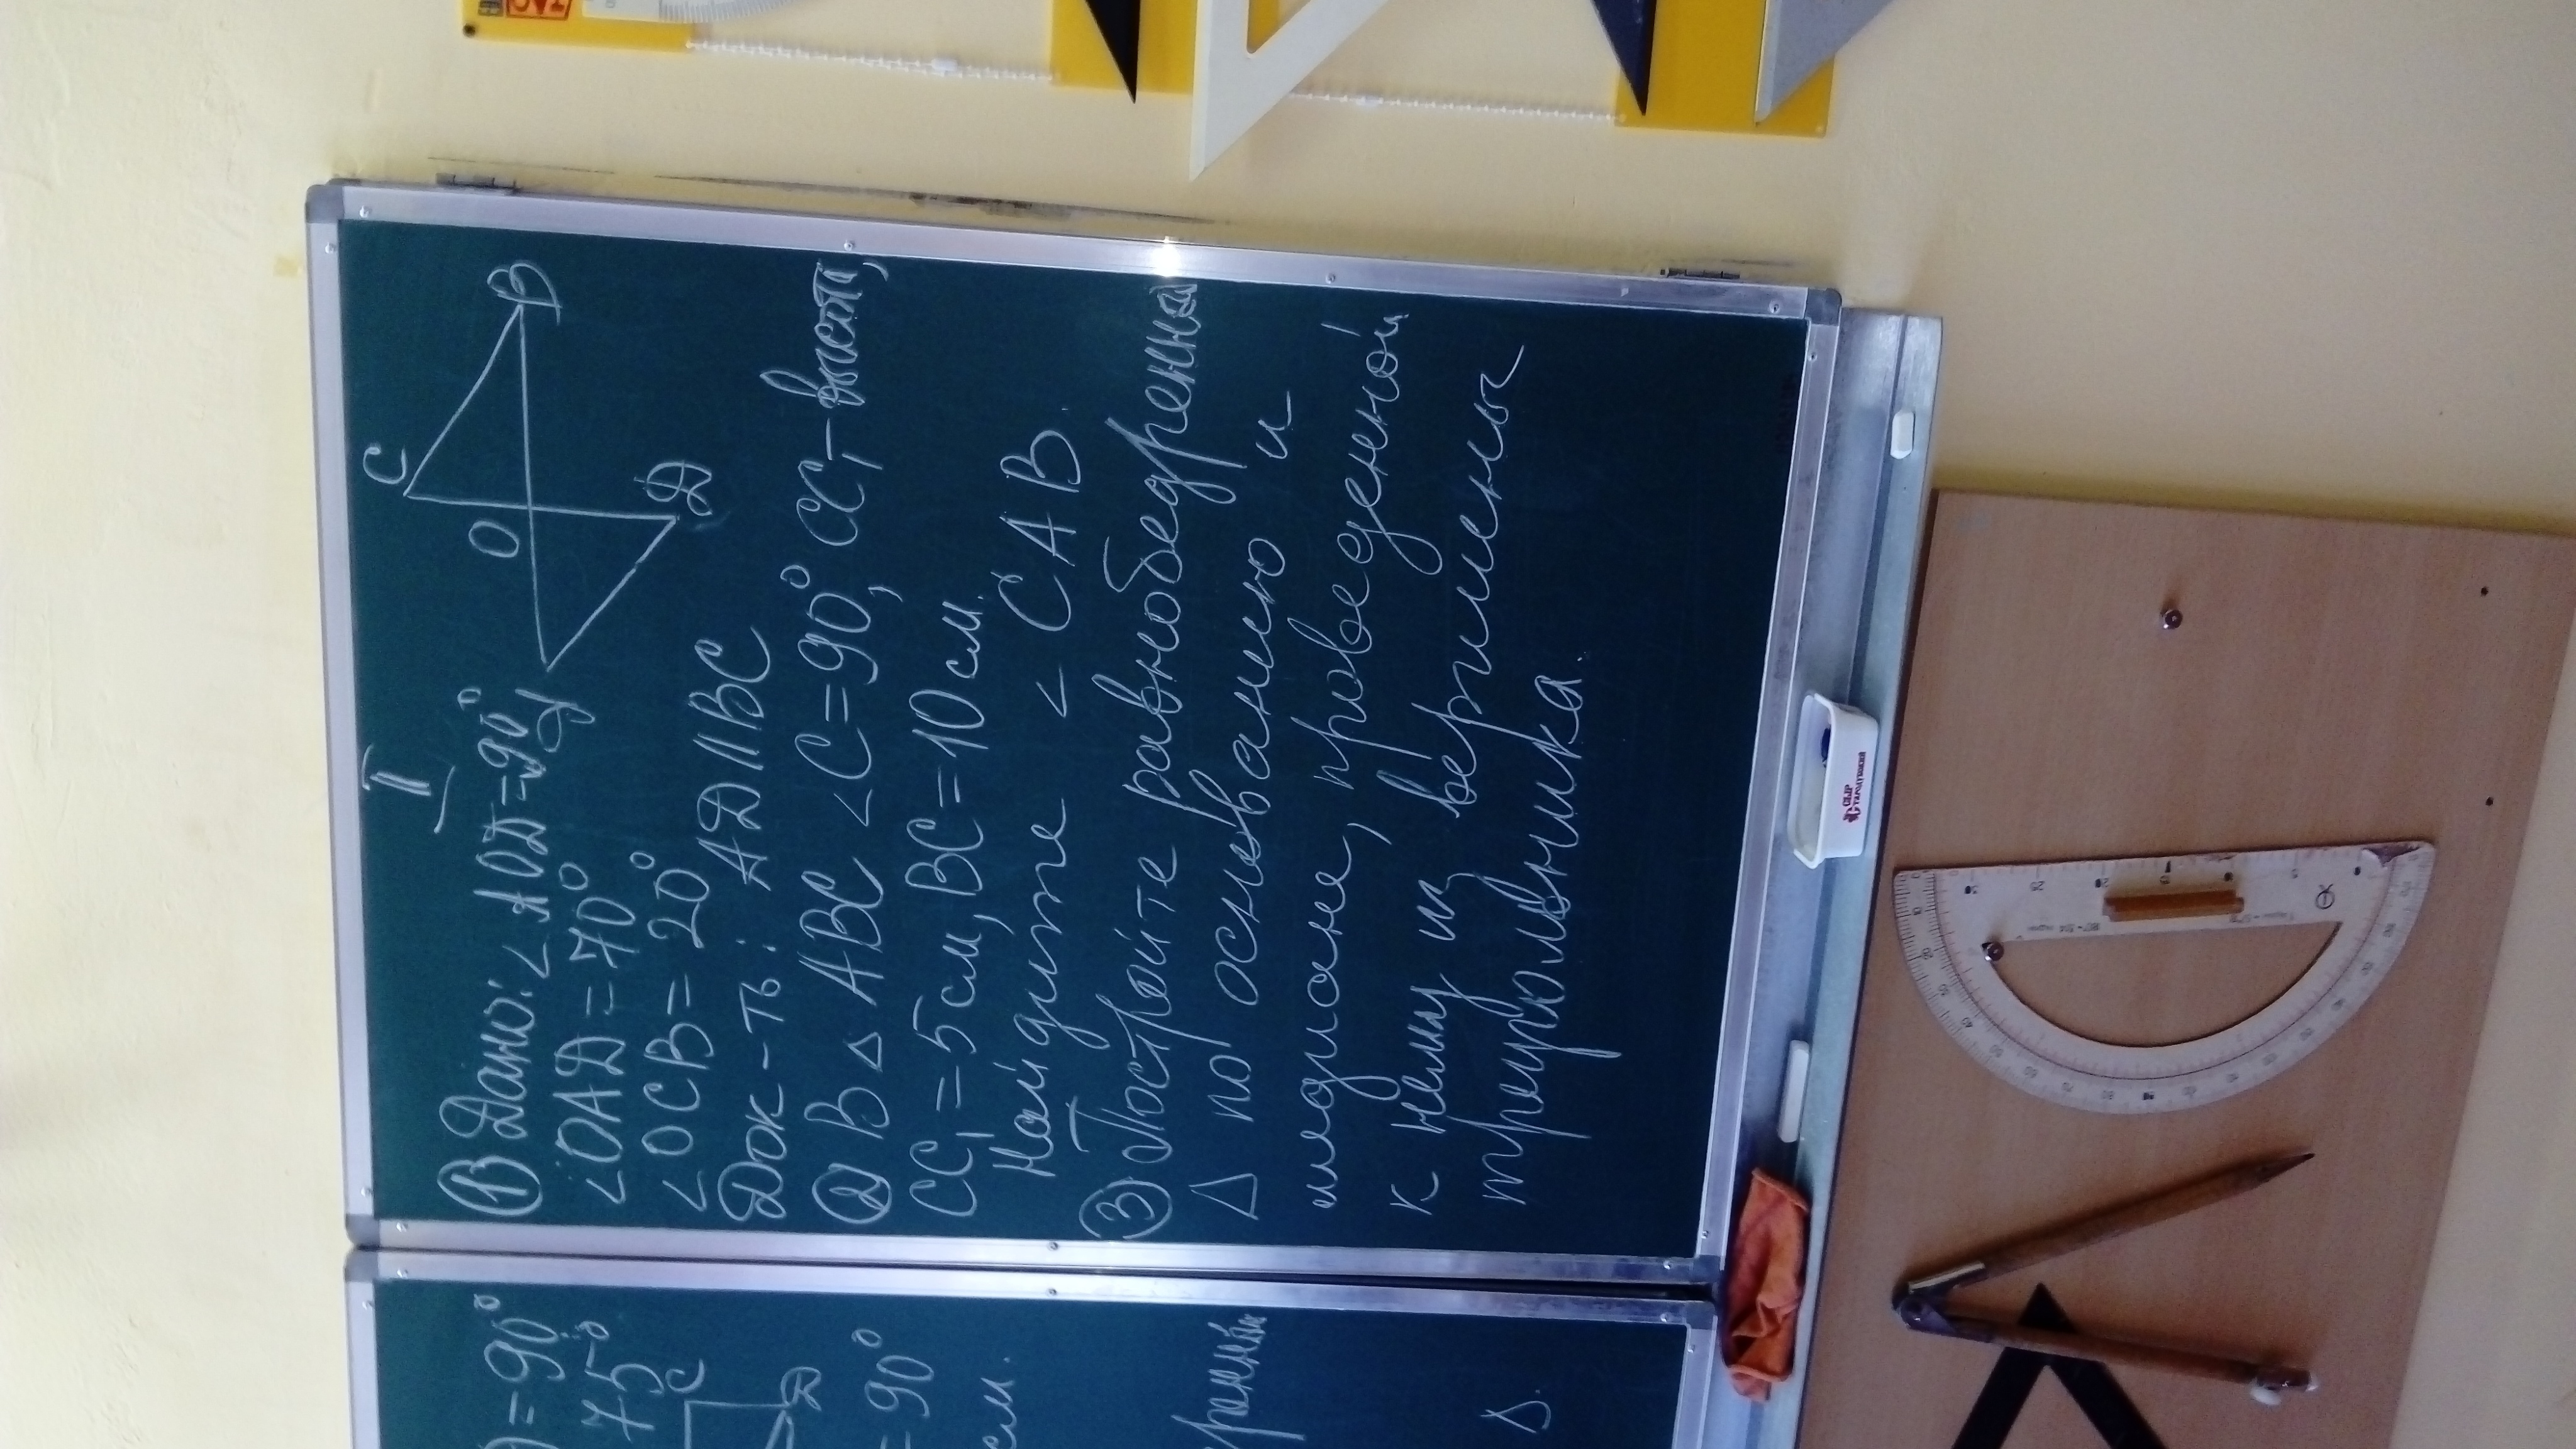 II
① Дано: ∠AOD=90°
∠OAD=70°
∠OCB=20°
Док-ть: AD∥BC
C
O
B
A
D
② В △ABC ∠C=90°, CC₁-высота,
CC₁=5см, BC=10см.
Найдите ∠CAB.
③ Постройте равнобедренный
△ по основанию и
медиане, проведенной
к нему из вершины
треугольника.
=90°
75°
C
D
=90°
см.
ренный
△.
СЫР